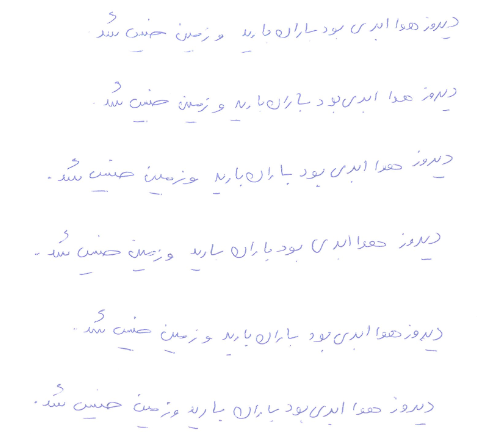 دیروز هوا ابری بود باران بارید و زمین خیس شد
دیروز هوا ابری بود باران بارید و زمین خیس شد.
دیروز هوا ابری بود باران بارید و زمین خیس شد.
دیروز هوا ابری بود باران بارید و زمین خیس شد.
دیروز هوا ابری بود باران بارید و زمین خیس شد.
دیروز هوا ابری بود باران بارید و زمین خیس شد.